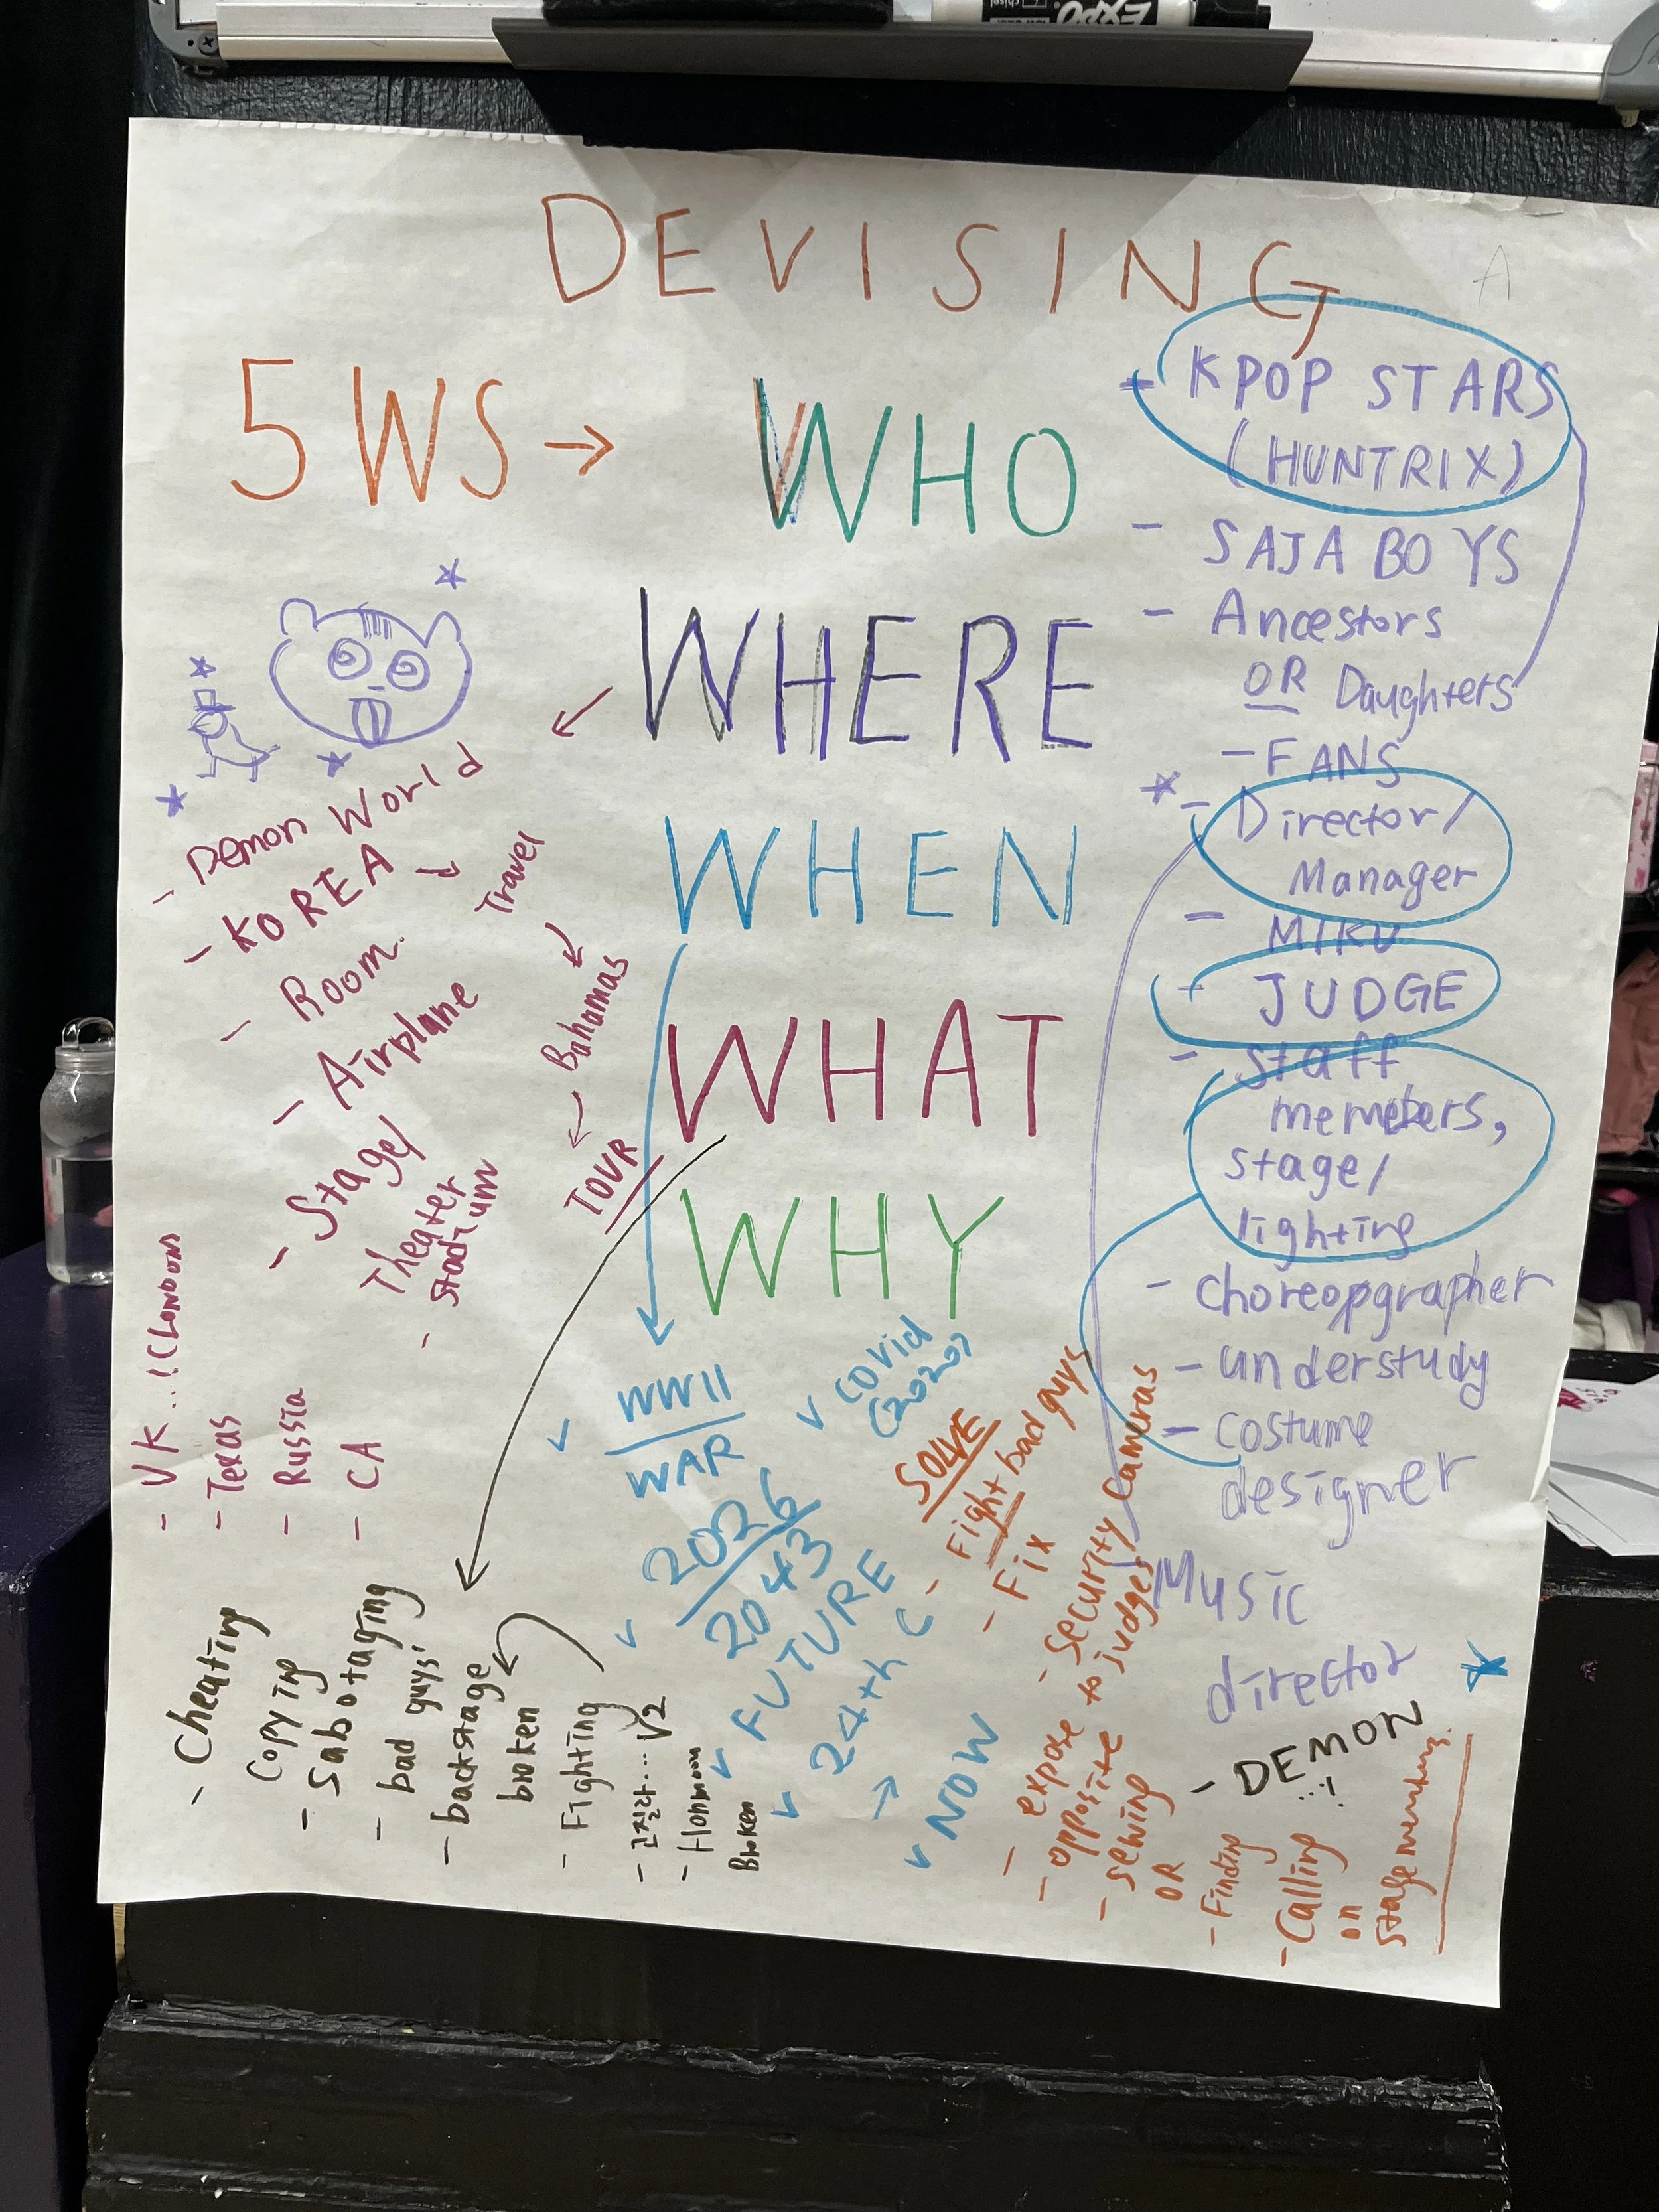 EXPO
DEVISING
5 WS → WHO
WHERE
WHEN
WHAT
WHY
- KPOP STARS
(HUNTRIX)
- SAJA BOYS
- Ancestors
OR Daughters
- FANS
- Director/
Manager
- MIKU
- JUDGE
- Staff
members,
stage/
lighting
- choreopgrapher
- understudy
- costume
designer
Music
director
- DEMON
- Demon World
- KOREA
- Room.
- Airplane
- Stage/
Theater
- stadium
Travel
Bahamas
TOUR
- UK...! (LONDON)
- Texas
- Russia
- CA
- Cheating
Copying
- Sabotaging
- bad guys!
- backstage
broken
- Fighting
- V2
- Honmoon
Broken
WWII
WAR
Covid
2026
2043
FUTURE
24th C
→ NOW
SOLVE
- Fight bad guys
- Fix
- security cameras
- expose to judges
- opposite
- sewing
OR
- Finding
- Calling
on